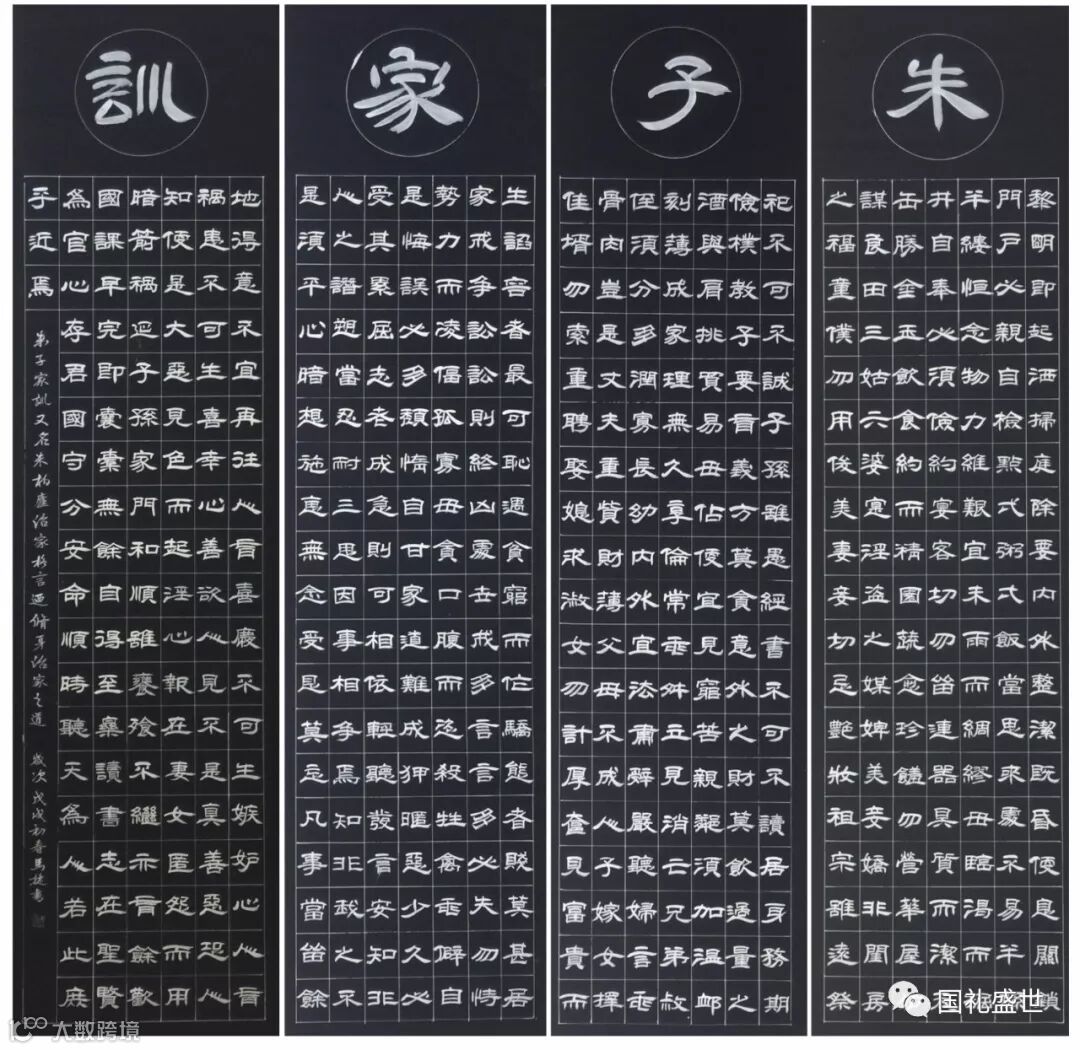 朱子家訓
黎明即起洒掃庭除要內外整潔既昏便息關鎖
門戶必親自檢點弌粥弌飯當思來處不易半
半縷恒念物力維艱宜未雨而綢繆毋臨渴而
井自奉必須儉約宴客切勿留連器具質而潔
缶勝金玉飲食約而精園蔬愈珍饈勿營華屋
謀良田三姑六婆寔淫盜之媒婢美妾嬌非閨房
之福童僕勿用俊美妻妾切忌艷妝祖宗雖遠祭
祀不可不誠子孫雖愚經書不可不讀居身務期
儉樸教子要有義方莫貪意外之財莫飲過量之
酒與肩挑貿易毋佔便宜見窮苦親鄰須加温卹
刻薄成家理無久享倫常乖舛立見消亡兄弟叔
侄須分多潤寡長幼內外宜法肅辭嚴聽婦言乖
骨肉豈是丈夫重貲財薄父母不成人子嫁女擇
佳壻勿索重聘娶媳求淑女勿計厚奩見富貴而
生諂容者最可恥遇貧窮而作驕態者賤莫甚居
家戒争訟訟則終凶處世戒多言言多必失勿恃
勢力而凌偪孤寡毋貪口腹而恣殺牲禽乖僻自
是悔誤必多頹惰自甘家道難成狎暱惡少久必
受其累屈志老成急則可相依輕聽發言安知非
人之譖愬當忍耐三思因事相争焉知非我之不
是須平心暗想施惠無念受恩莫忘凡事當留餘
地得意不宜再往人有喜慶不可生嫉妒心人有
禍患不可生喜幸心善欲人見不是真善惡恐人
知便是大惡見色而起淫心報在妻女匿怨而用
暗箭禍延子孫家門和順雖饔飧不繼亦有餘歡
國課早完即囊橐無餘自得至樂讀書志在聖賢
為官心存君國守分安命順時聽天為人若此庶
乎近焉
朱子家訓又名朱柏廬治家格言迺脩身治家之道 歲次戊戌初春馬書
国礼盛世
大数跨境